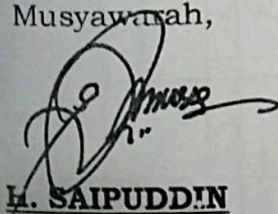 Musyawarah,
H. SAIPUDDIN